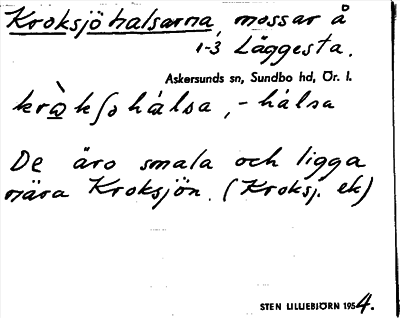 Kroksjöhalsarna, mossar å
1-3 Läggesta.
Askersunds sn, Sundbo hd, Ör. l.
krὰkʃo hálsa, -hálsa
De äro smala och ligga
nära Kroksjön. (Kroksj. ek)
STEN LILLIEBJÖRN 1954.